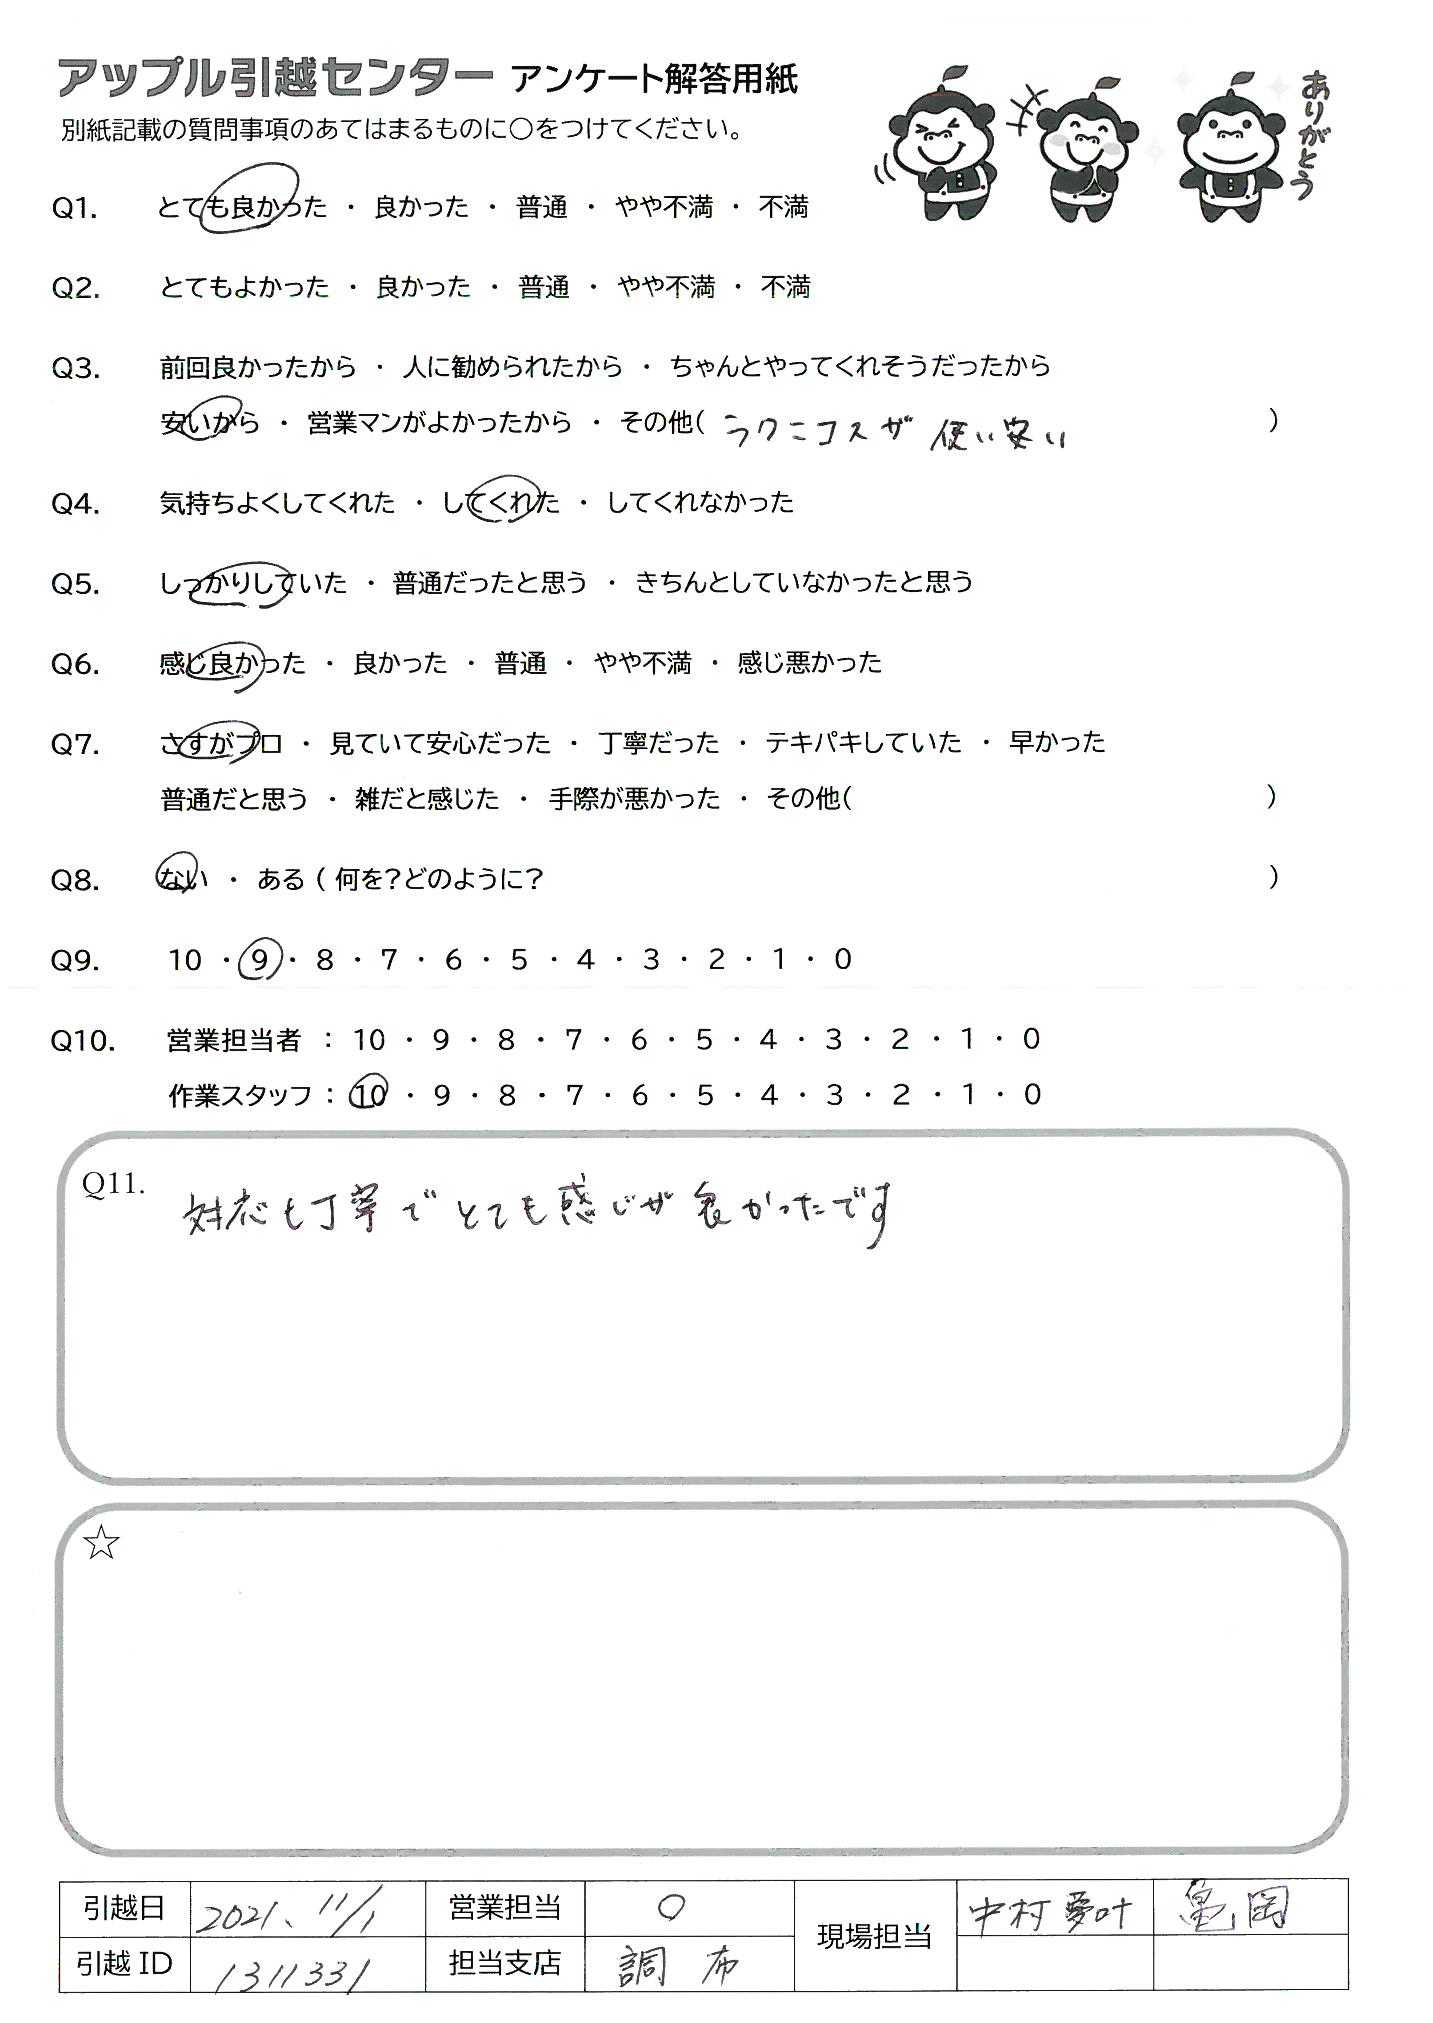 アップル引越センター アンケート解答用紙
別紙記載の質問事項のあてはまるものに○をつけてください。
ありがとう
Q1. とても良かった ・ 良かった ・ 普通 ・ やや不満 ・ 不満
Q2. とてもよかった ・ 良かった ・ 普通 ・ やや不満 ・ 不満
Q3. 前回良かったから ・ 人に勧められたから ・ ちゃんとやってくれそうだったから
安いから ・ 営業マンがよかったから ・ その他( ラクニコスガ 使い安い )
Q4. 気持ちよくしてくれた ・ してくれた ・ してくれなかった
Q5. しっかりしていた ・ 普通だったと思う ・ きちんとしていなかったと思う
Q6. 感じ良かった ・ 良かった ・ 普通 ・ やや不満 ・ 感じ悪かった
Q7. さすがプロ ・ 見ていて安心だった ・ 丁寧だった ・ テキパキしていた ・ 早かった
普通だと思う ・ 雑だと感じた ・ 手際が悪かった ・ その他( )
Q8. ない ・ ある ( 何を?どのように? )
Q9. 10 ・ 9 ・ 8 ・ 7 ・ 6 ・ 5 ・ 4 ・ 3 ・ 2 ・ 1 ・ 0
Q10. 営業担当者 : 10 ・ 9 ・ 8 ・ 7 ・ 6 ・ 5 ・ 4 ・ 3 ・ 2 ・ 1 ・ 0
作業スタッフ : 10 ・ 9 ・ 8 ・ 7 ・ 6 ・ 5 ・ 4 ・ 3 ・ 2 ・ 1 ・ 0
Q11. 対応も丁寧でとても感じが良かったです
☆
引越日 2021、11/1 営業担当 ○ 現場担当 中村 夢叶 亀岡
引越 ID 1311331 担当支店 調布